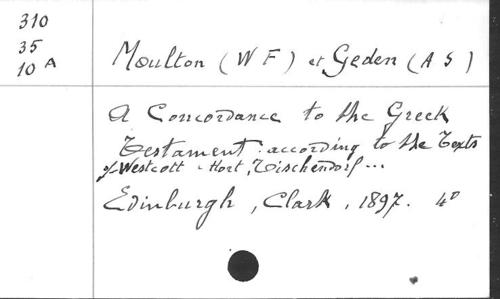 310
35
10 A
Moulton (W F) et Geden (A S)
A Concordance to the Greek
Testament : according to the Texts
of Westcott - Hort, Tischendorf ...
Edinburgh, Clark, 1897. 4°